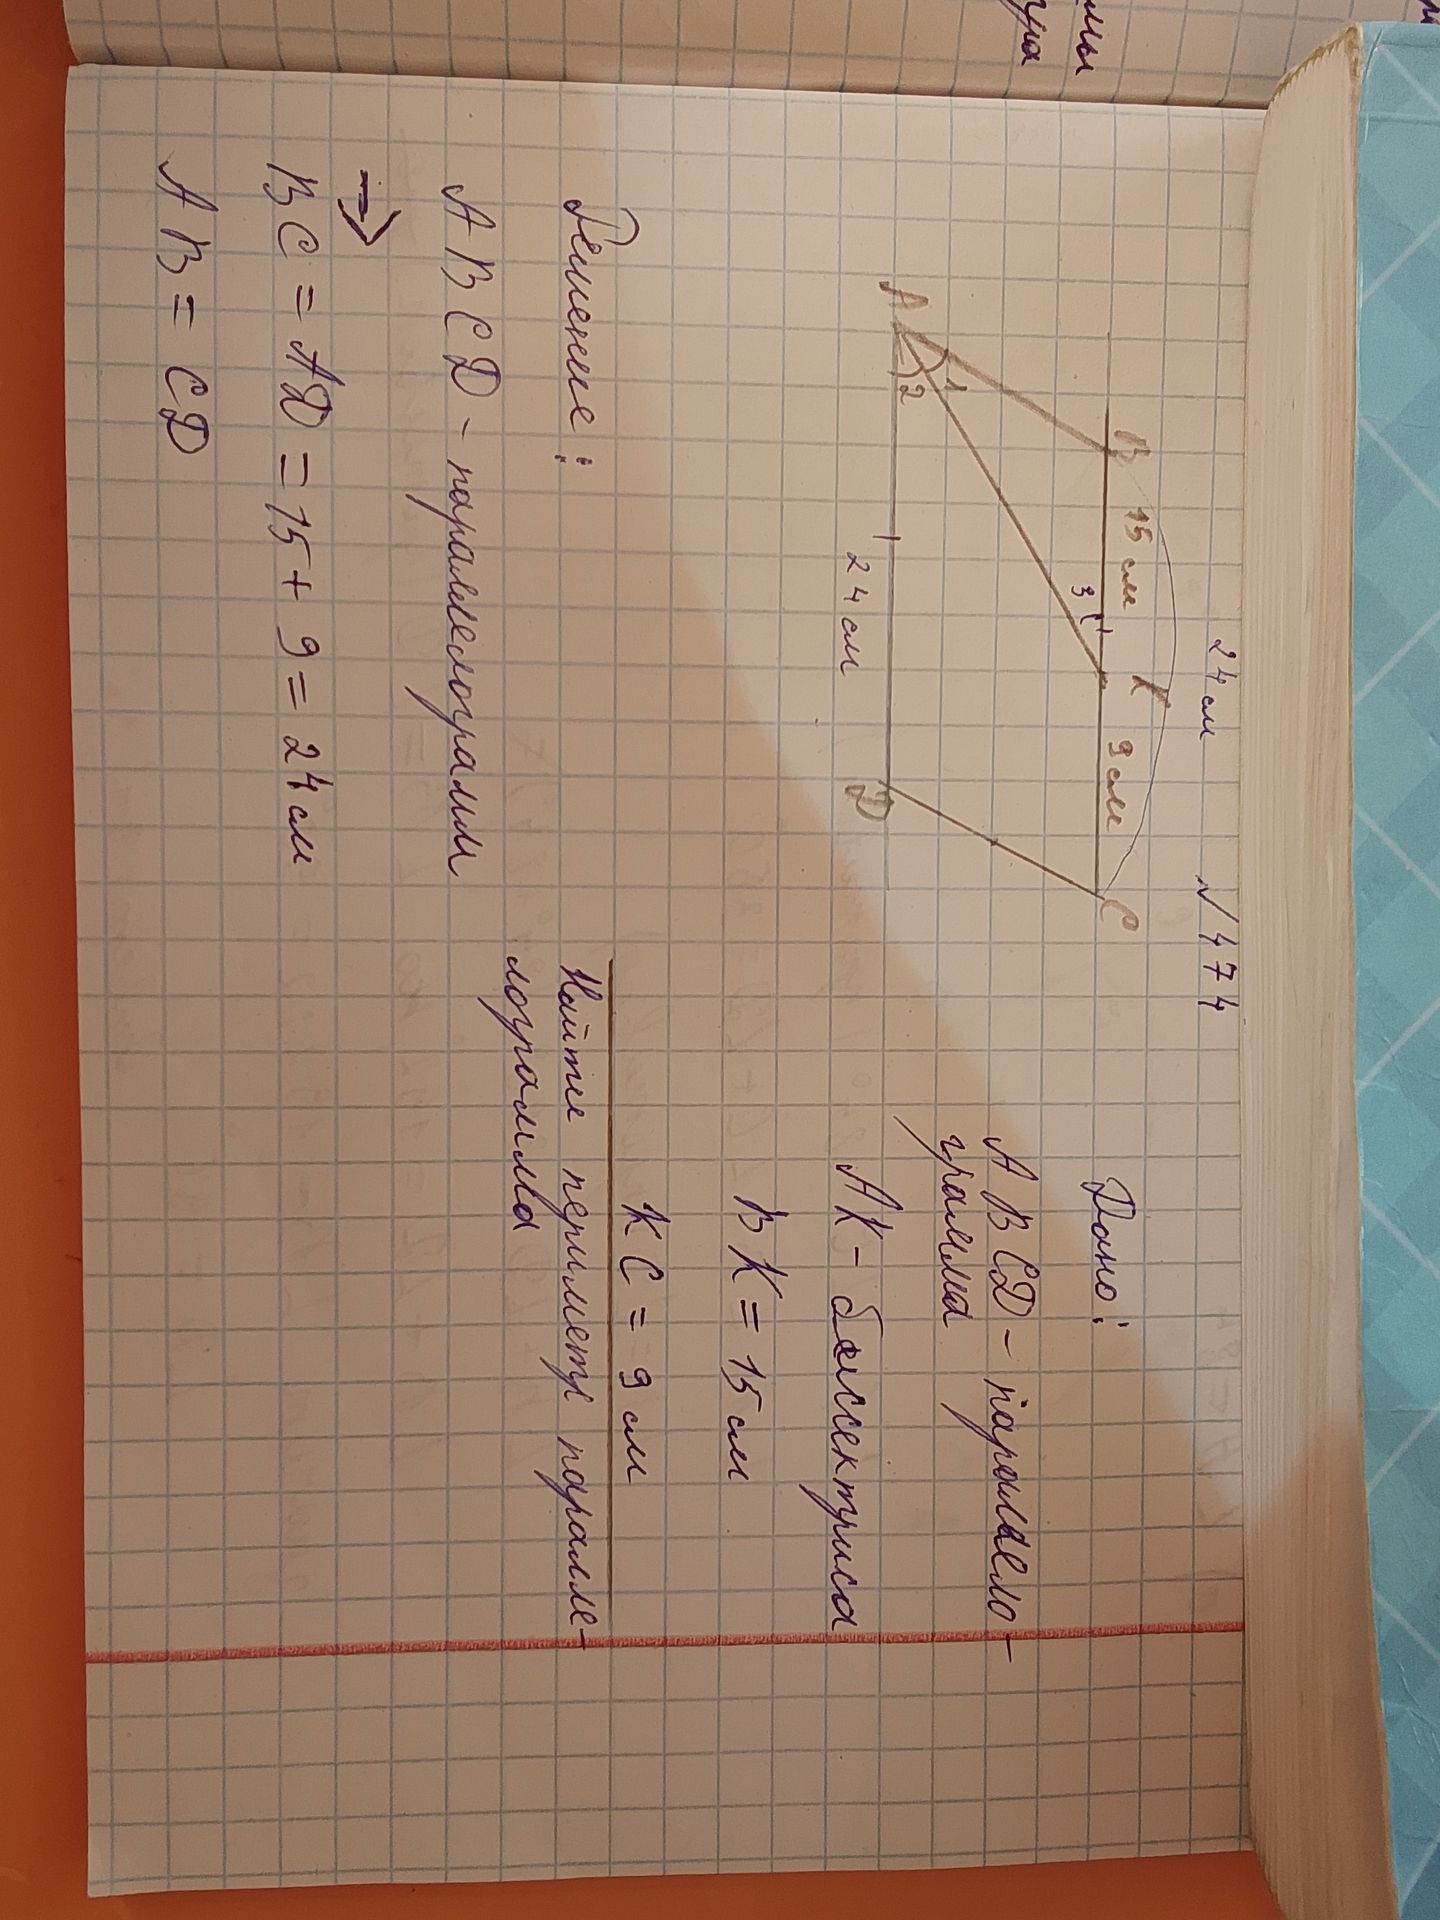 24 см
№ 474
B 15 см K 9 см C
3
1
2
A
24 см
D
Дано:
ABCD - параллело-
грамма
AK - биссектриса
BK = 15 см
KC = 9 см
Найти периметр паралле-
лограмма
Решение:
ABCD - параллелограмм
⇒
BC = AD = 15 + 9 = 24 см
AB = CD